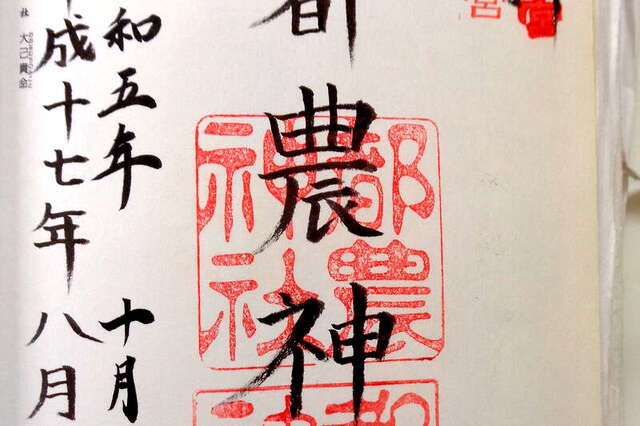 都農神
都農
神社
和五年 十月
成十七年 八月
社 大己貴命